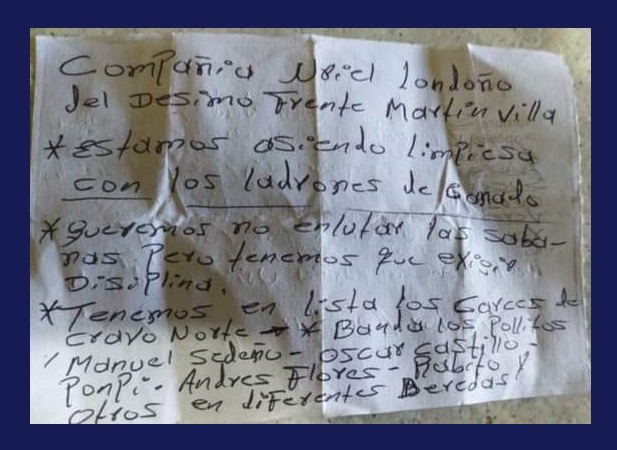 Compañia Uriel Londoño
del Desimo Frente Martin Villa
* Estamos asiendo limpiesa
con los ladrones de Ganado
* queremos no enlutar las saba-
nas Pero tenemos que exigir
Disiplina.
* Tenemos en lista los Garces de
Cravo Norte → * Banda los Pollitos
Manuel Sedeño - Oscar Castillo -
PonPi - Andres Flores - y
Otros en diferentes Beredas